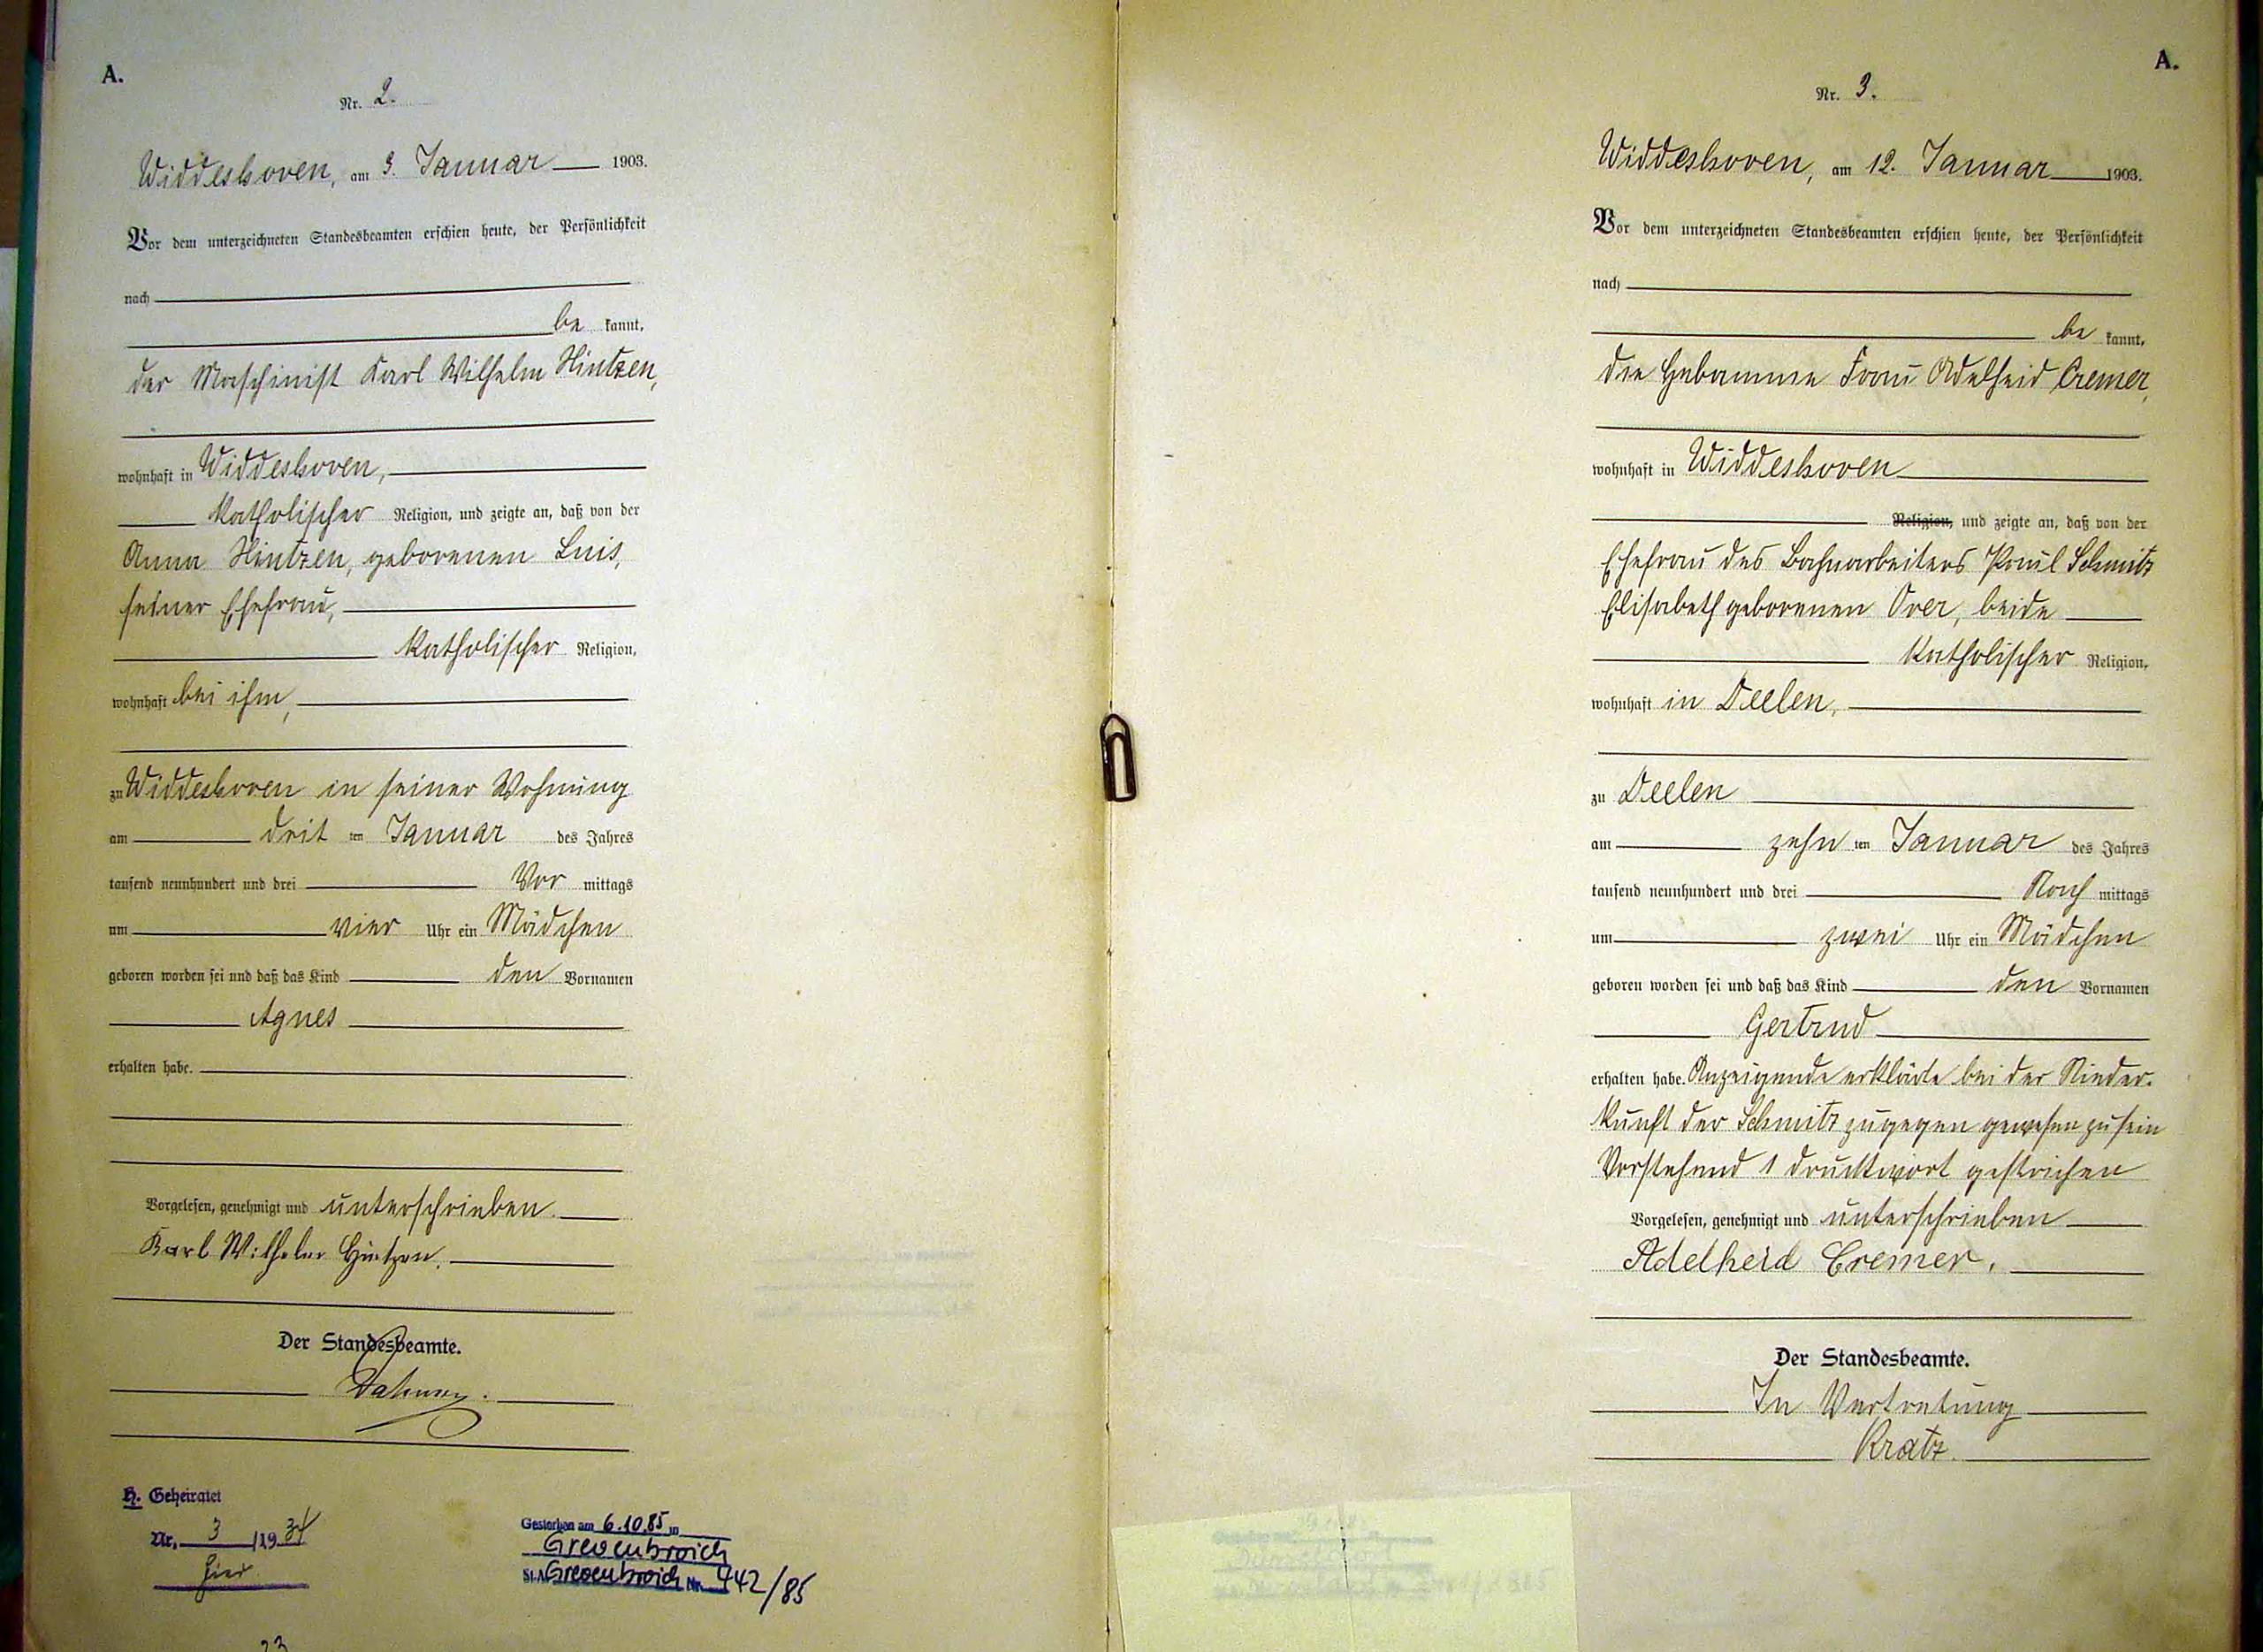 A.
Nr. 2.
Widdeshoven, am 3. Januar 1903.
Vor dem unterzeichneten Standesbeamten erschien heute, der Persönlichkeit
nach
be kannt,
der Maschinist Karl Wilhelm Hintzen,
wohnhaft in Widdeshoven,
katholischer Religion, und zeigte an, daß von der
Anna Hintzen, geborenen Luis,
seiner Ehefrau,
katholischer Religion,
wohnhaft bei ihm,
zu Widdeshoven in seiner Wohnung
am drit ten Januar des Jahres
tausend neunhundert und drei Vor mittags
um vier Uhr ein Mädchen
geboren worden sei und daß das Kind den Vornamen
Agnes
erhalten habe.
Vorgelesen, genehmigt und unterschrieben.
Karl Wilhelm Hintzen.
Der Standesbeamte.
H. Geheiratet
Nr. 3 /1934
hier
Gestorben am 6.10.85 in
Grevenbroich
St.A. Grevenbroich Nr. 442/85
23
A.
Nr. 3.
Widdeshoven, am 12. Januar 1903.
Vor dem unterzeichneten Standesbeamten erschien heute, der Persönlichkeit
nach
be kannt,
die Hebamme Frau Adelheid Cremer,
wohnhaft in Widdeshoven
Religion, und zeigte an, daß von der
Ehefrau des Bahnarbeiters Paul Schmitz
Elisabeth geborenen Over, beide
katholischer Religion,
wohnhaft in Deelen,
zu Deelen
am zehn ten Januar des Jahres
tausend neunhundert und drei Nach mittags
um zwei Uhr ein Mädchen
geboren worden sei und daß das Kind den Vornamen
Gertrud
erhalten habe. Anzeigende erklärte bei der Nieder-
kunft der Schmitz zugegen gewesen zu sein
Vorstehend 1 Druckwort gestrichen
Vorgelesen, genehmigt und unterschrieben
Adelheid Cremer.
Der Standesbeamte.
In Vertretung
Kratz.